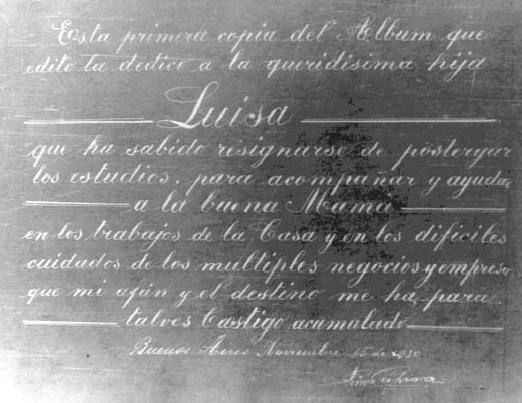 Esta primera copia del Album que
edito la dedico a la queridisima hija
Luisa
que ha sabido resignarse de postergar
los estudios, para acompañar y ayudar
a la buena Mama
en los trabajos de la Casa y en los dificiles
cuidados de los multiples negocios y empresa
que mi afán y el destino me ha, para
talves Castigo acumulado
Buenos Aires Noviembre 15 de 1930